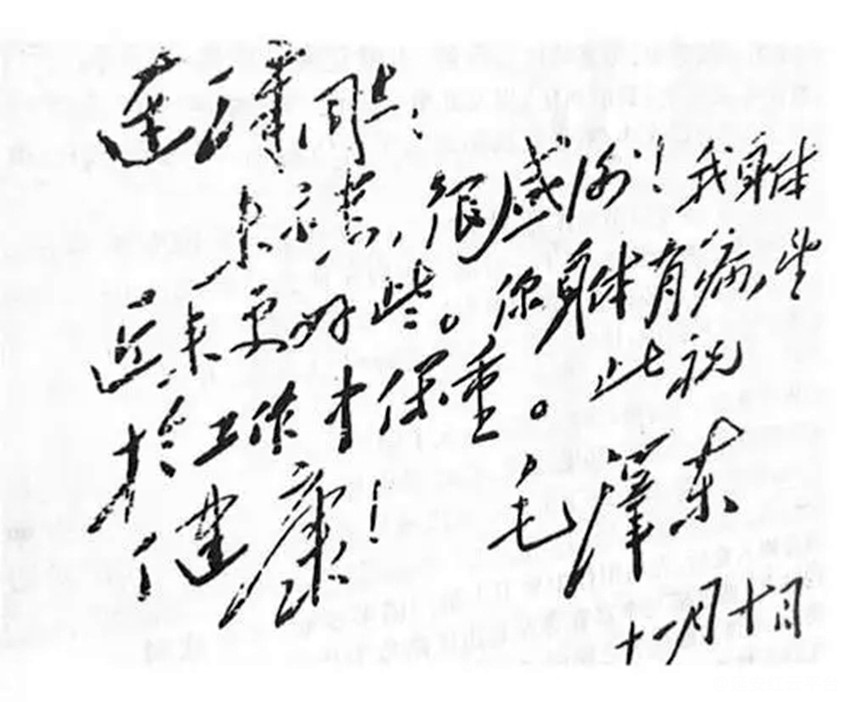 同志:
来示悉,很感谢!我身体
近来更好些。你身体有病,望
於工作中保重。此祝
健康!
毛泽东
十一月十日